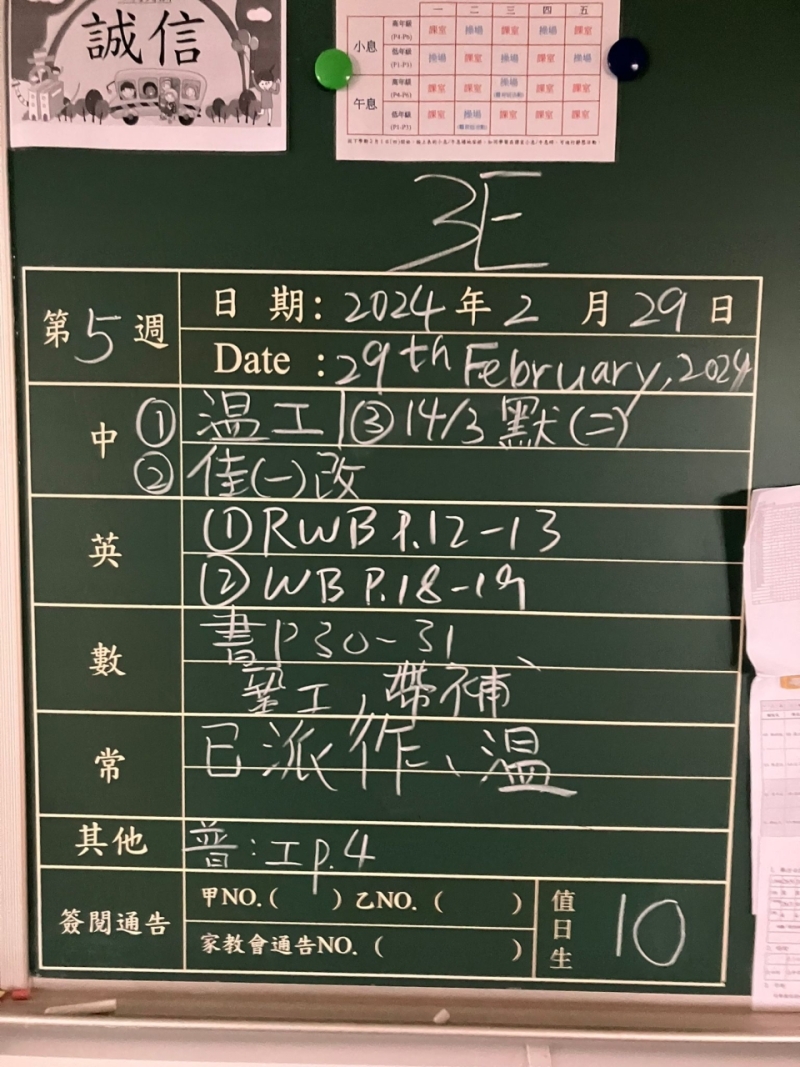 誠信
一 二 三 四 五
小息 高年級 (P4-P6) 課室 操場 課室 操場 課室
低年級 (P1-P3) 操場 課室 操場 課室 操場
午息 高年級 (P4-P6) 課室 課室 操場 課室 課室
低年級 (P1-P3) 課室 操場 課室 課室 課室
3E
第5週 日期：2024年2月29日
Date : 29th February, 2024
中 ① 温工 ③ 14/3 默(二)
② 佳(一)改
英 ① RWB P.12-13
② WB P.18-19
數 書P30-31
工, 帶補
常 已派作、温
其他 普：工p.4
簽閱通告 甲NO. ( ) 乙NO. ( ) 值日生 10
家教會通告NO. ( )